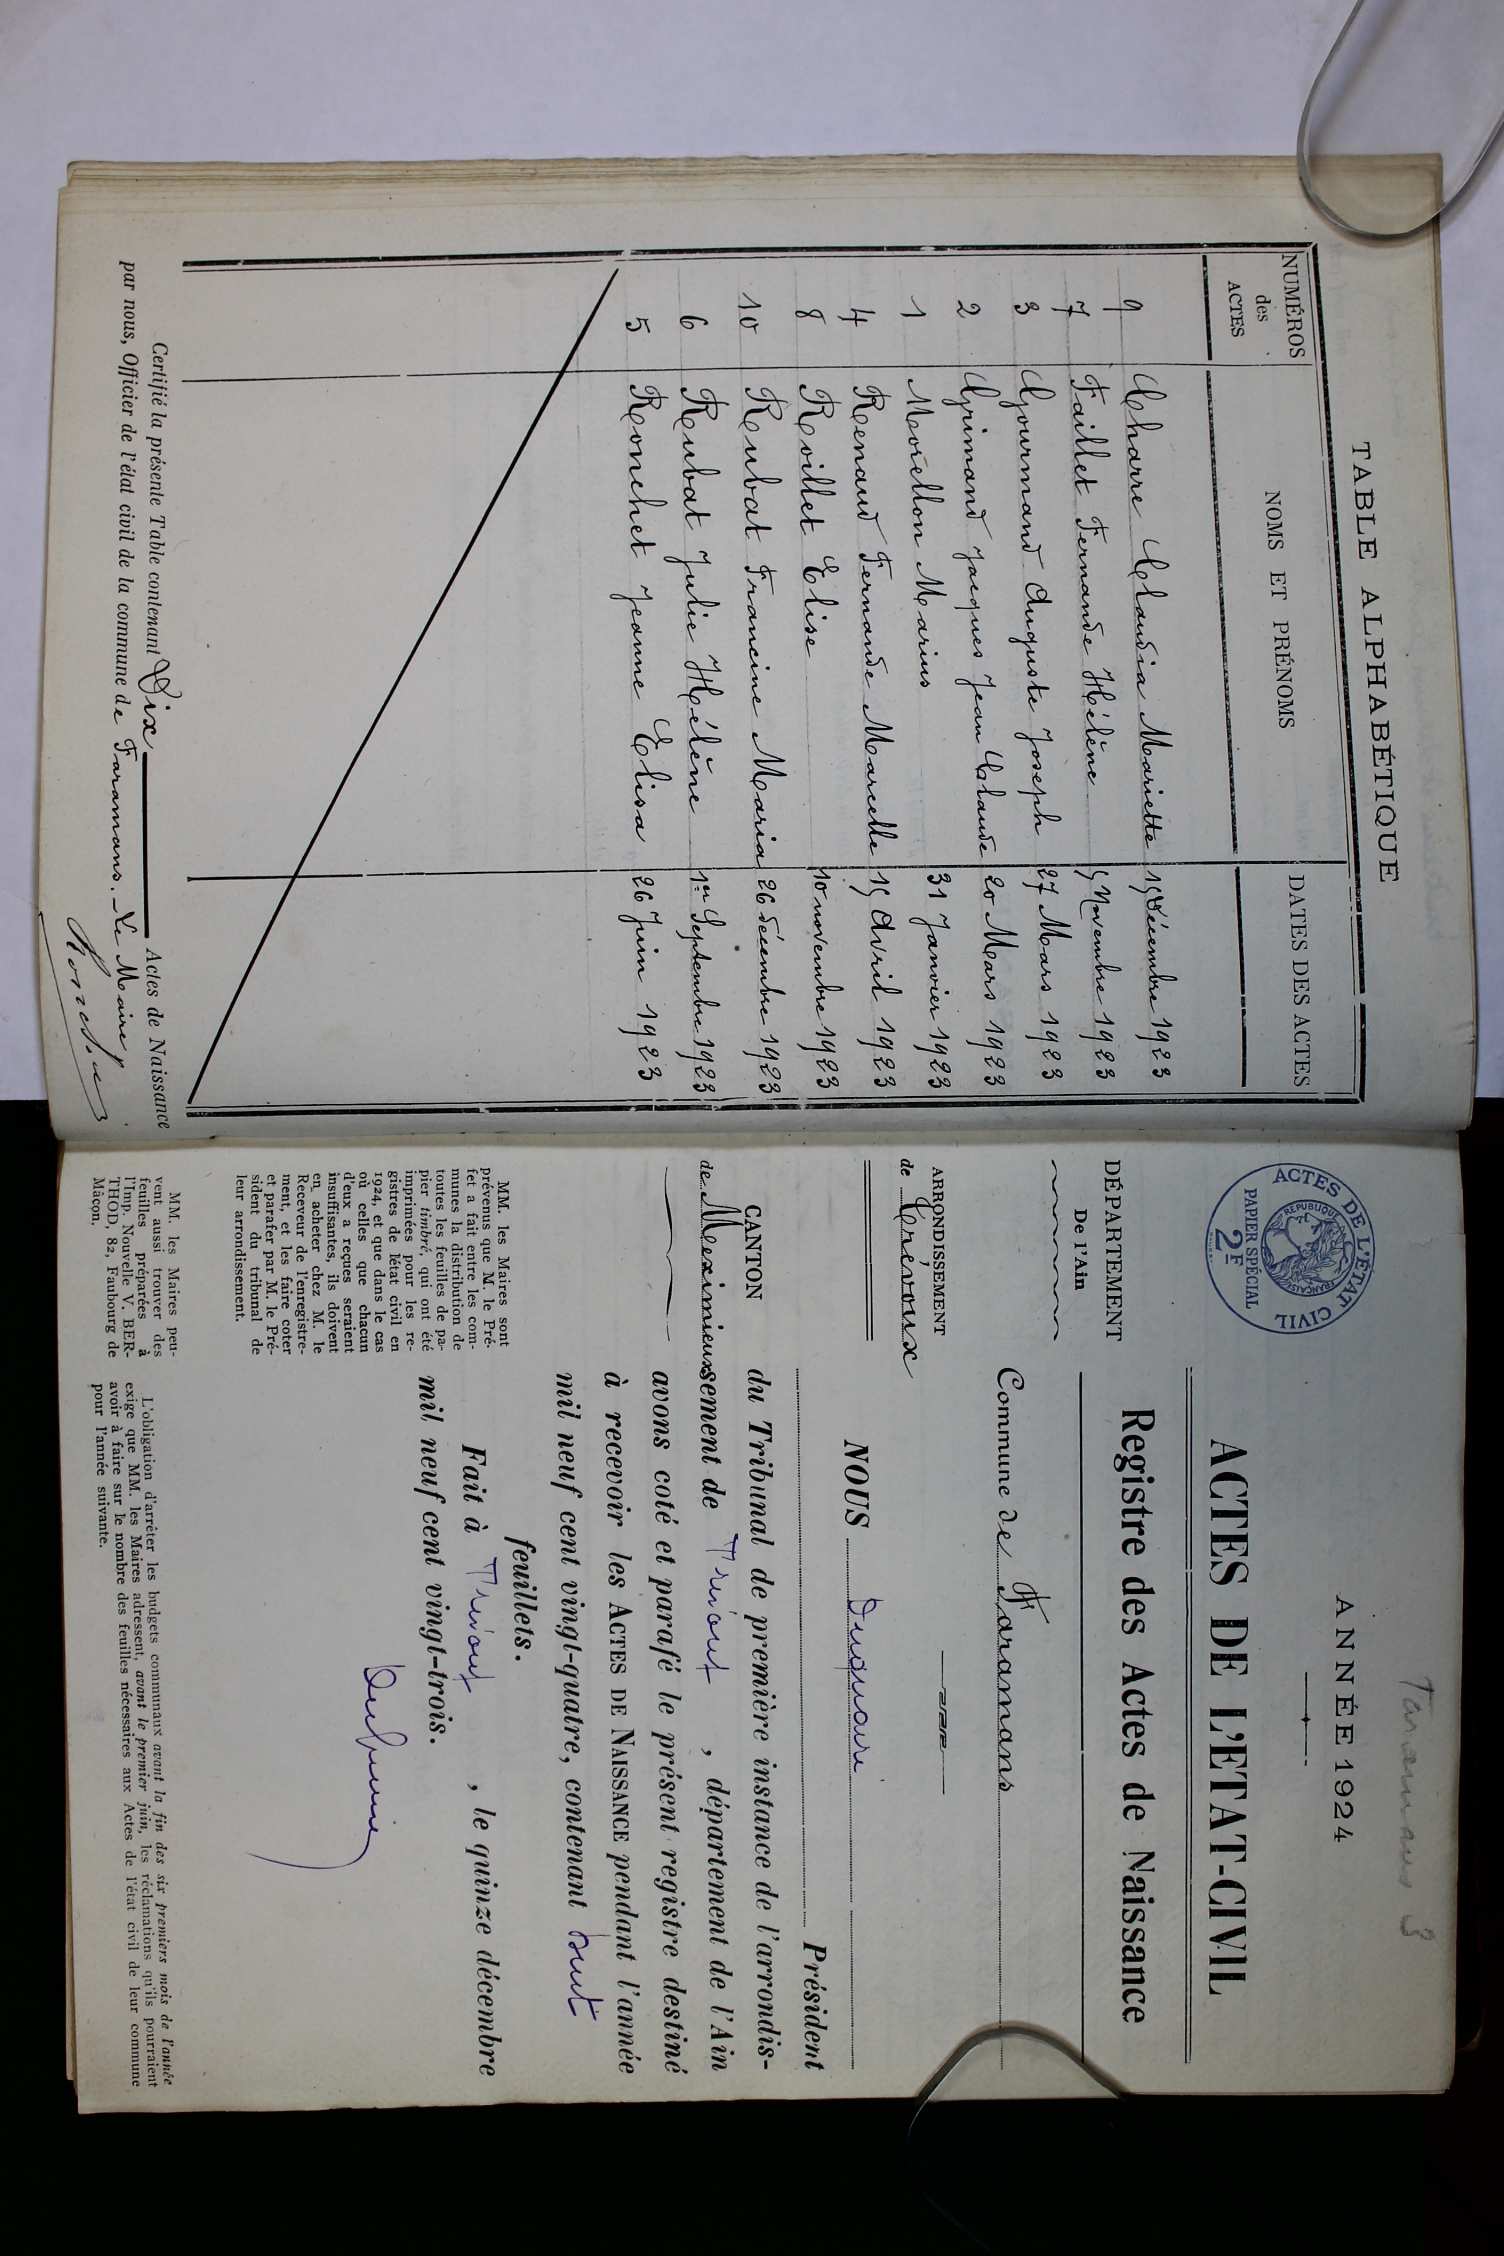 TABLE ALPHABÉTIQUE
NUMÉROS des ACTES NOMS ET PRÉNOMS DATES DES ACTES
9 Charre Claudia Mariette 19 Décembre 1923
7 Faillet Fernande Hélène 9 Novembre 1923
3 Gourmand Auguste Joseph 27 Mars 1923
2 Grimand Jacques Jean Claude 20 Mars 1923
1 Moiellon Marius 31 Janvier 1923
4 Renaud Fernande Marcelle 19 Avril 1923
8 Roillet Elise 10 novembre 1923
10 Rubat Francine Maria 26 décembre 1923
6 Rubat Julie Hélène 1er Septembre 1923
5 Ronchet Jeanne Elisa 26 Juin 1923
Certifié la présente Table contenant Dix Actes de Naissance
par nous, Officier de l'état civil de la commune de Faramans. Le Maire
ANNÉE 1924
ACTES DE L'ÉTAT CIVIL
RÉPUBLIQUE FRANÇAISE
PAPIER SPÉCIAL
2F
ACTES DE L'ETAT-CIVIL
DÉPARTEMENT
De l'Ain
Registre des Actes de Naissance
Commune de Faramans
ARRONDISSEMENT
de Trévoux
CANTON
de Meximieux
NOUS Président
du Tribunal de première instance de l'arrondis-
sement de Trévoux, département de l'Ain
avons coté et parafé le présent registre destiné
à recevoir les ACTES DE NAISSANCE pendant l'année
mil neuf cent vingt-quatre, contenant huit
feuillets.
Fait à Trévoux, le quinze décembre
mil neuf cent vingt-trois.
MM. les Maires sont
prévenus que M. le Pré-
fet a fait entre les com-
munes la distribution de
toutes les feuilles de pa-
pier timbré, qui ont été
imprimées pour les re-
gistres de l'état civil en
1924, et que dans le cas
où celles que chacun
d'eux a reçues seraient
insuffisantes, ils doivent
en acheter chez M. le
Receveur de l'enregistre-
ment, et les faire coter
et parafer par M. le Pré-
sident du tribunal de
leur arrondissement.
MM. les Maires peu-
vent aussi trouver des
feuilles préparées à
l'Imp. Nouvelle V. BER-
THOD, 82, Faubourg de
Mâcon.
L'obligation d'arrêter les budgets communaux avant la fin des six premiers mois de l'année
exige que MM. les Maires adressent, avant le premier juin, les réclamations qu'ils pourraient
avoir à faire sur le nombre des feuilles nécessaires aux Actes de l'état civil de leur commune
pour l'année suivante.